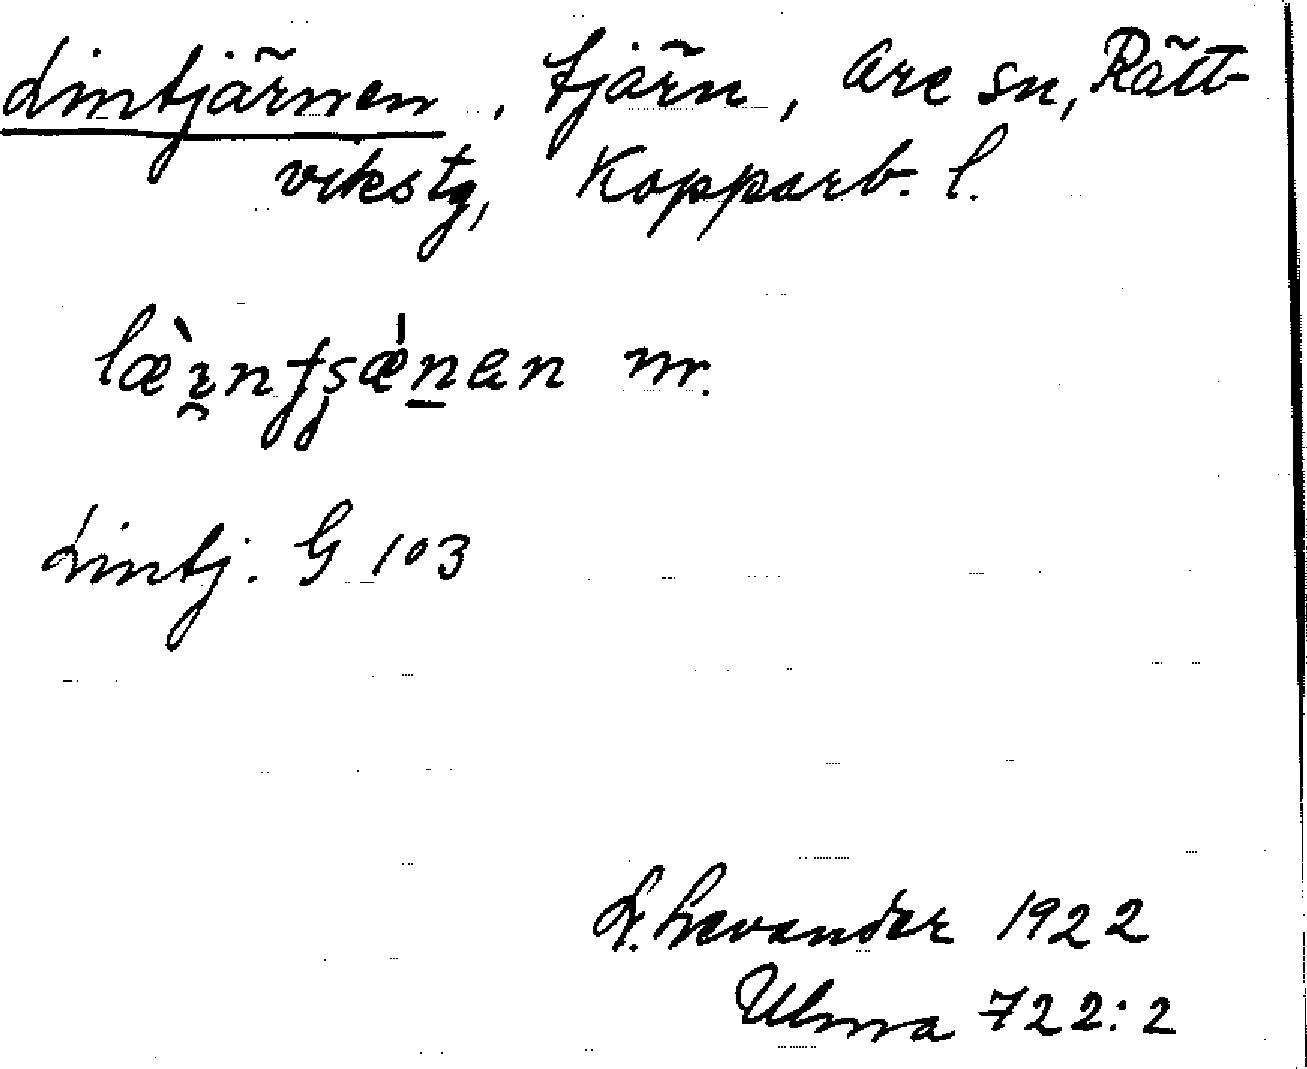 Lintjärnen, tjärn, Ore sn, Rätt-
vikstg, Kopparb. l.
læ̀ı̯ntʂǽn̠en nr.
Lintj. G 103
L. Levander 1922
Ulma 722:2